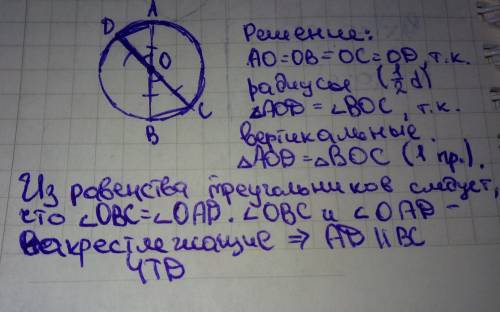 A
D
O
C
B
Решение:
AO=OB=OC=OD, т.к.
радиусы (1/2 d)
△AOD = ∠BOC, т.к.
вертикальные.
△AOD=△BOC (1 пр.).
Из равенства треугольников следует,
что ∠OBC=∠OAD. ∠OBC и ∠OAD -
накрестлежащие ⇒ AD || BC
ЧТД